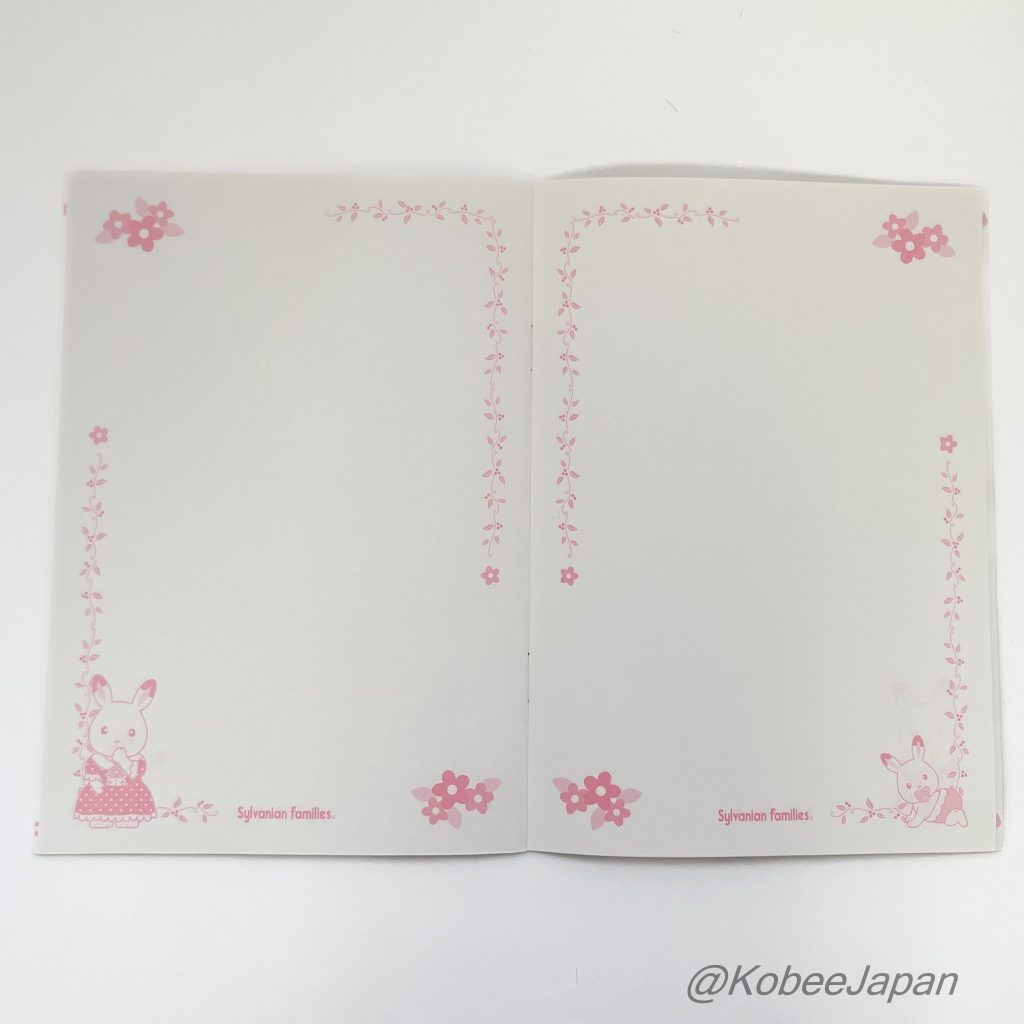 Sylvanian Families
Sylvanian Families
@KobeeJapan